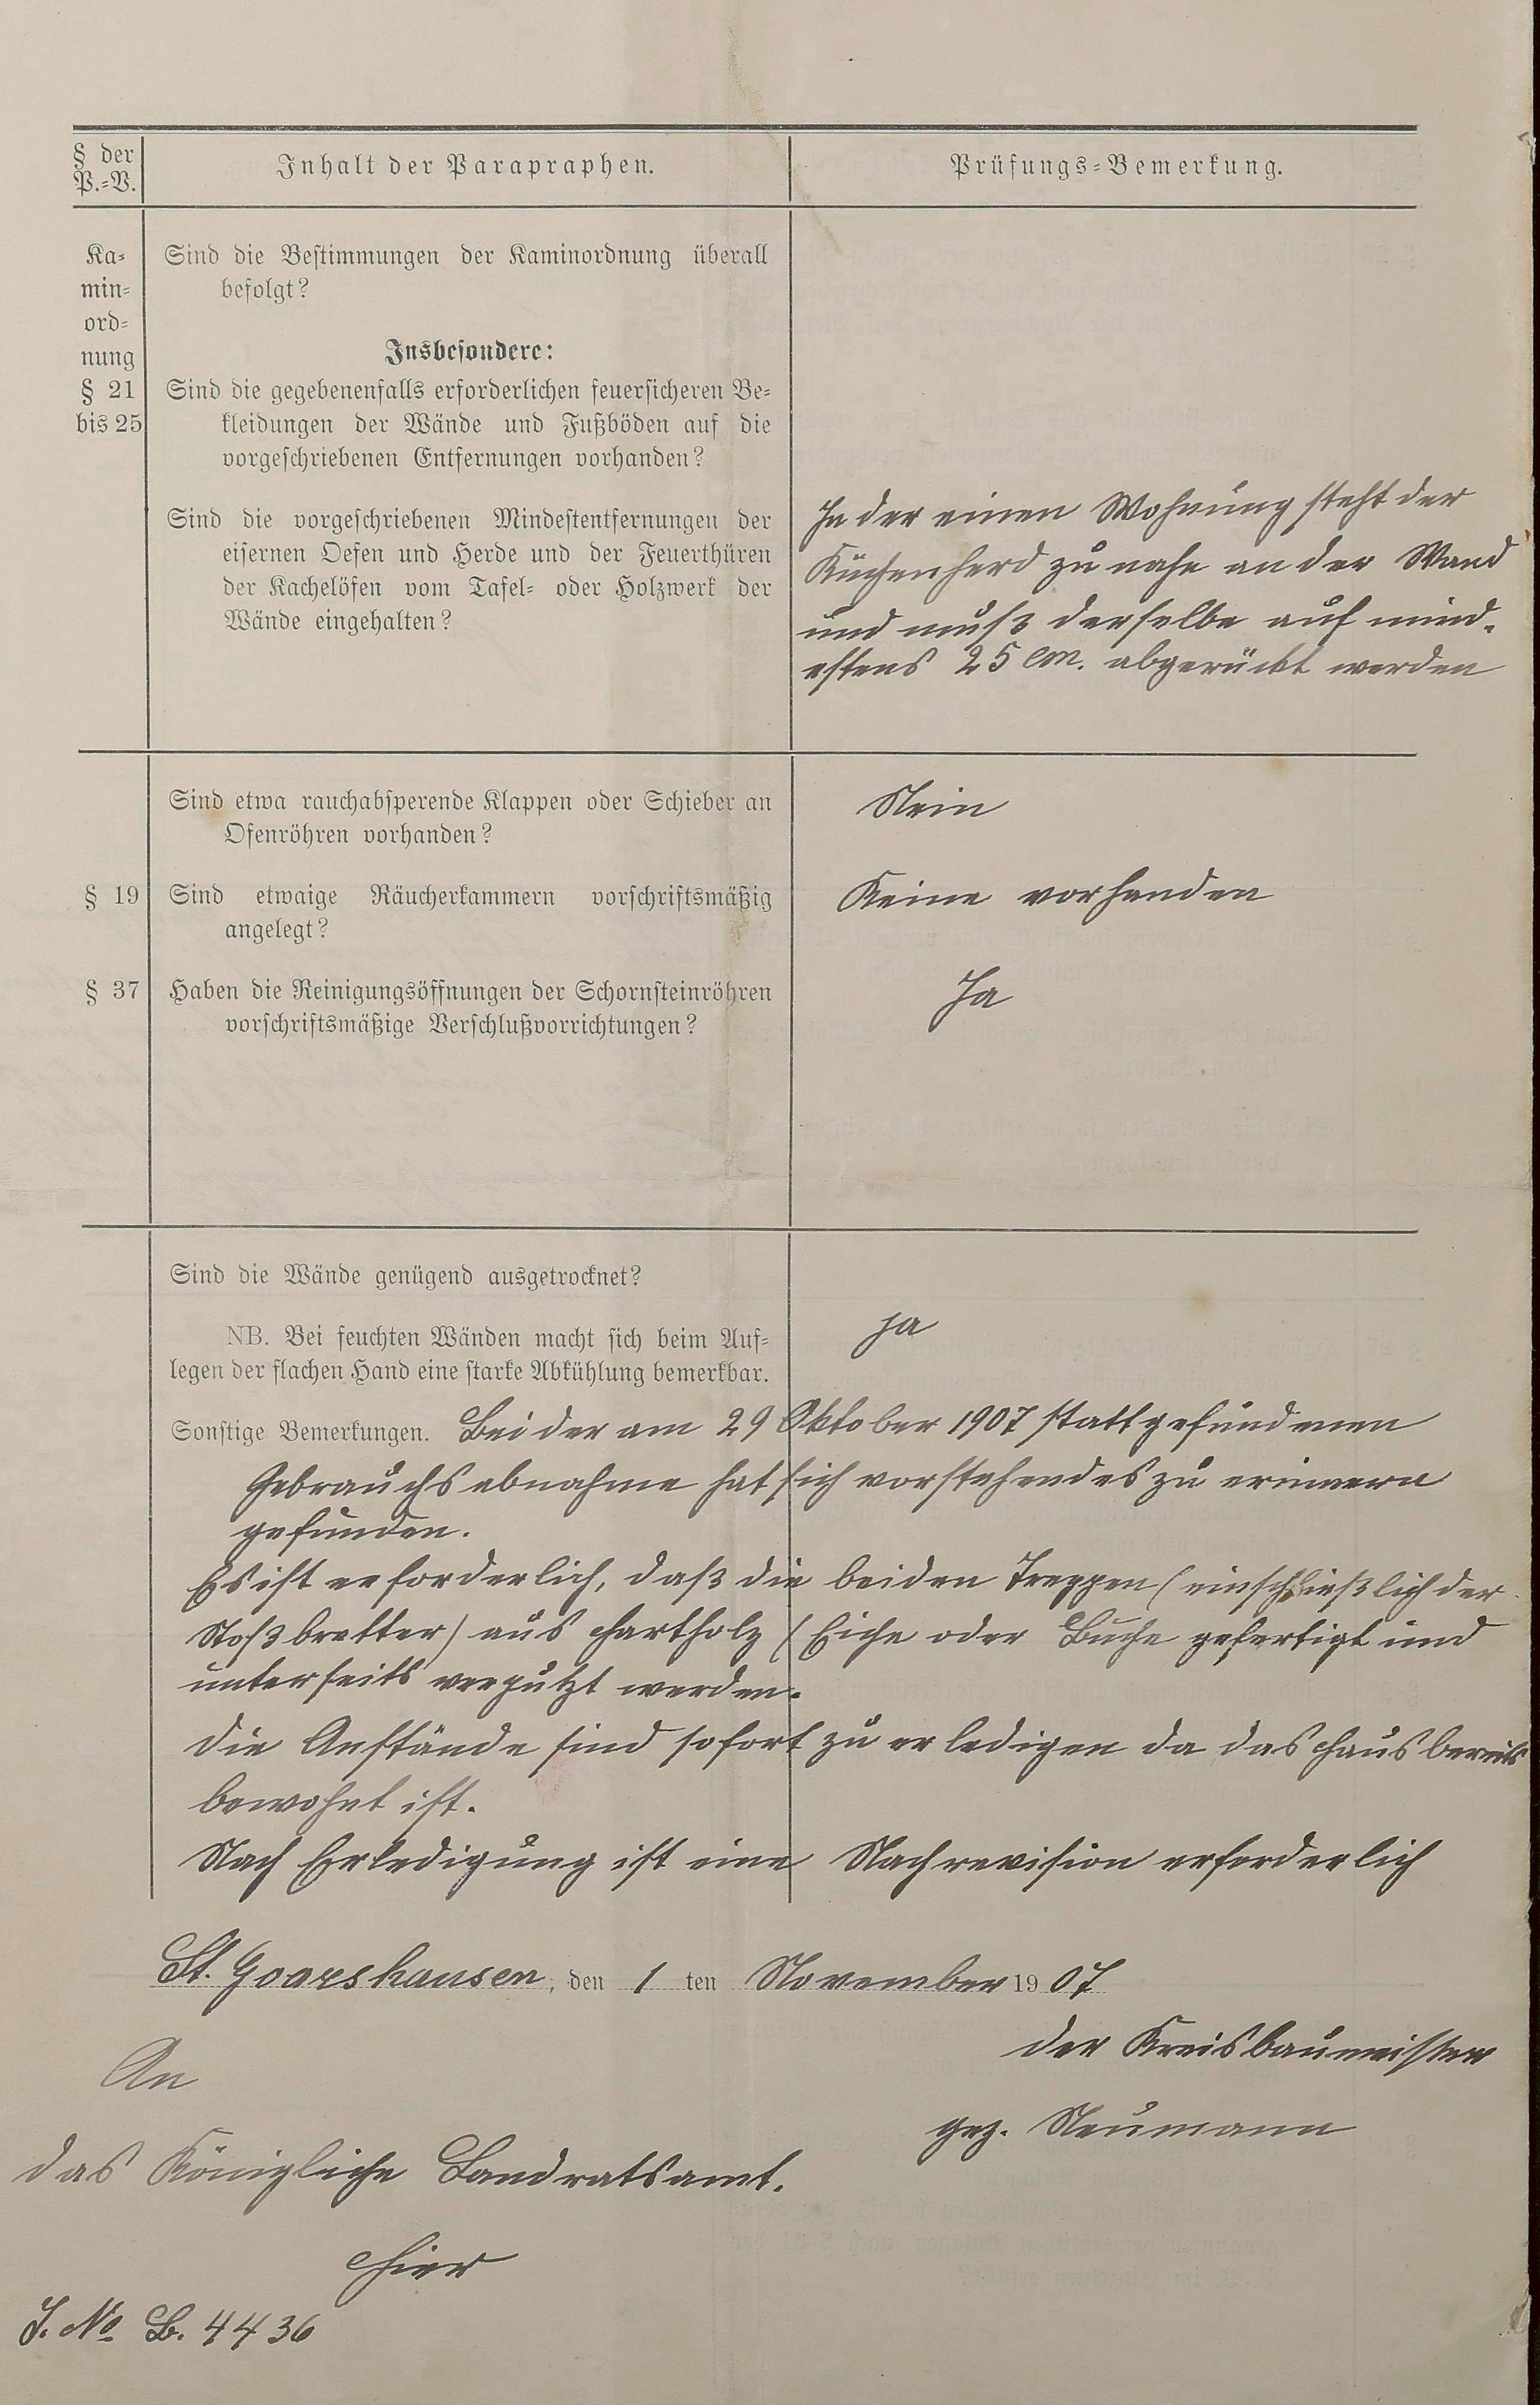 § der
P.=V.
Inhalt der Parapraphen.
Prüfungs=Bemerkung.
Ka=
min=
ord=
nung
§ 21
bis 25
Sind die Bestimmungen der Kaminordnung überall
befolgt?
Insbesondere:
Sind die gegebenenfalls erforderlichen feuersicheren Be=
kleidungen der Wände und Fußböden auf die
vorgeschriebenen Entfernungen vorhanden?
Sind die vorgeschriebenen Mindestentfernungen der
eisernen Oefen und Herde und der Feuerthüren
der Kachelöfen vom Tafel= oder Holzwerk der
Wände eingehalten?
In der einen Wohnung steht der
Küchenherd zu nahe an der Wand
und muß derselbe auf mind=
estens 25 cm. abgerückt werden
Sind etwa rauchabsperende Klappen oder Schieber an
Ofenröhren vorhanden?
Nein
§ 19
Sind etwaige Räucherkammern vorschriftsmäßig
angelegt?
Keine vorhanden
§ 37
Haben die Reinigungsöffnungen der Schornsteinröhren
vorschriftsmäßige Verschlußvorrichtungen?
Ja
Sind die Wände genügend ausgetrocknet?
NB. Bei feuchten Wänden macht sich beim Auf=
legen der flachen Hand eine starke Abkühlung bemerkbar.
ja
Sonstige Bemerkungen. Bei der am 29 Oktober 1907 stattgefundenen
Gebrauchsabnahme hat sich vorstehendes zu erinnern
gefunden.
Es ist erforderlich, daß die beiden Treppen (einschließlich der
Stoßbretter) aus Hartholz (Eiche oder Buche gefertigt und
unterseits verputzt werden.
Die Anstände sind sofort zu erledigen da das Haus bereits
bewohnt ist.
Nach Erledigung ist eine Nachrevision erforderlich
St. Goarshausen, den 1 ten November 1907
Der Kreisbaumeister
gez. Neumann
An
das Königliche Landratsamt.
Hier
J. No B. 4436